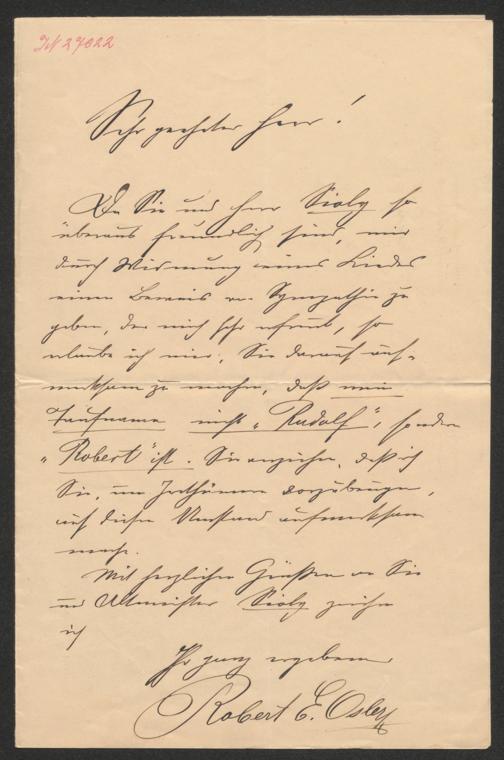 IN 27022
Sehr geehrter Herr!
Da Sie und Herr Sioly so
überaus freundlich sind, mir
durch Widmung eines Liedes
einen Beweis von Sympathie zu
geben, der mich sehr erfreut, so
erlaube ich mir, Sie darauf auf-
merksam zu machen, daß mein
Taufname nicht „Rudolf", sondern
„Robert" ist. Sie verzeihen, daß ich
Sie, um Irrthümern vorzubeugen,
auf diesen Umstand aufmerksam
mache.
Mit herzlichen Grüßen an Sie
und Altmeister Sioly zeichne
ich
Ihr ganz ergebener
Robert E. Osley